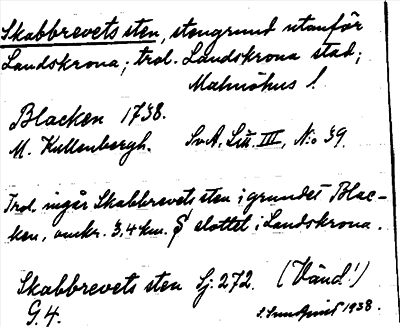 Skabbrevets sten, stengrund utanför
Landskrona; trol. Landskrona stad;
Malmöhus l.
Blacken 1738.
M. Kullenbergh. SvA. Litt. III, N:o 39.
Trol. ingår Skabbrevets sten i grundet Blac-
ken, omkr. 3,4 km. slottet i Landskrona.
Skabbrevets sten Sj. 272. (Vänd!)
G. 4. 1938.